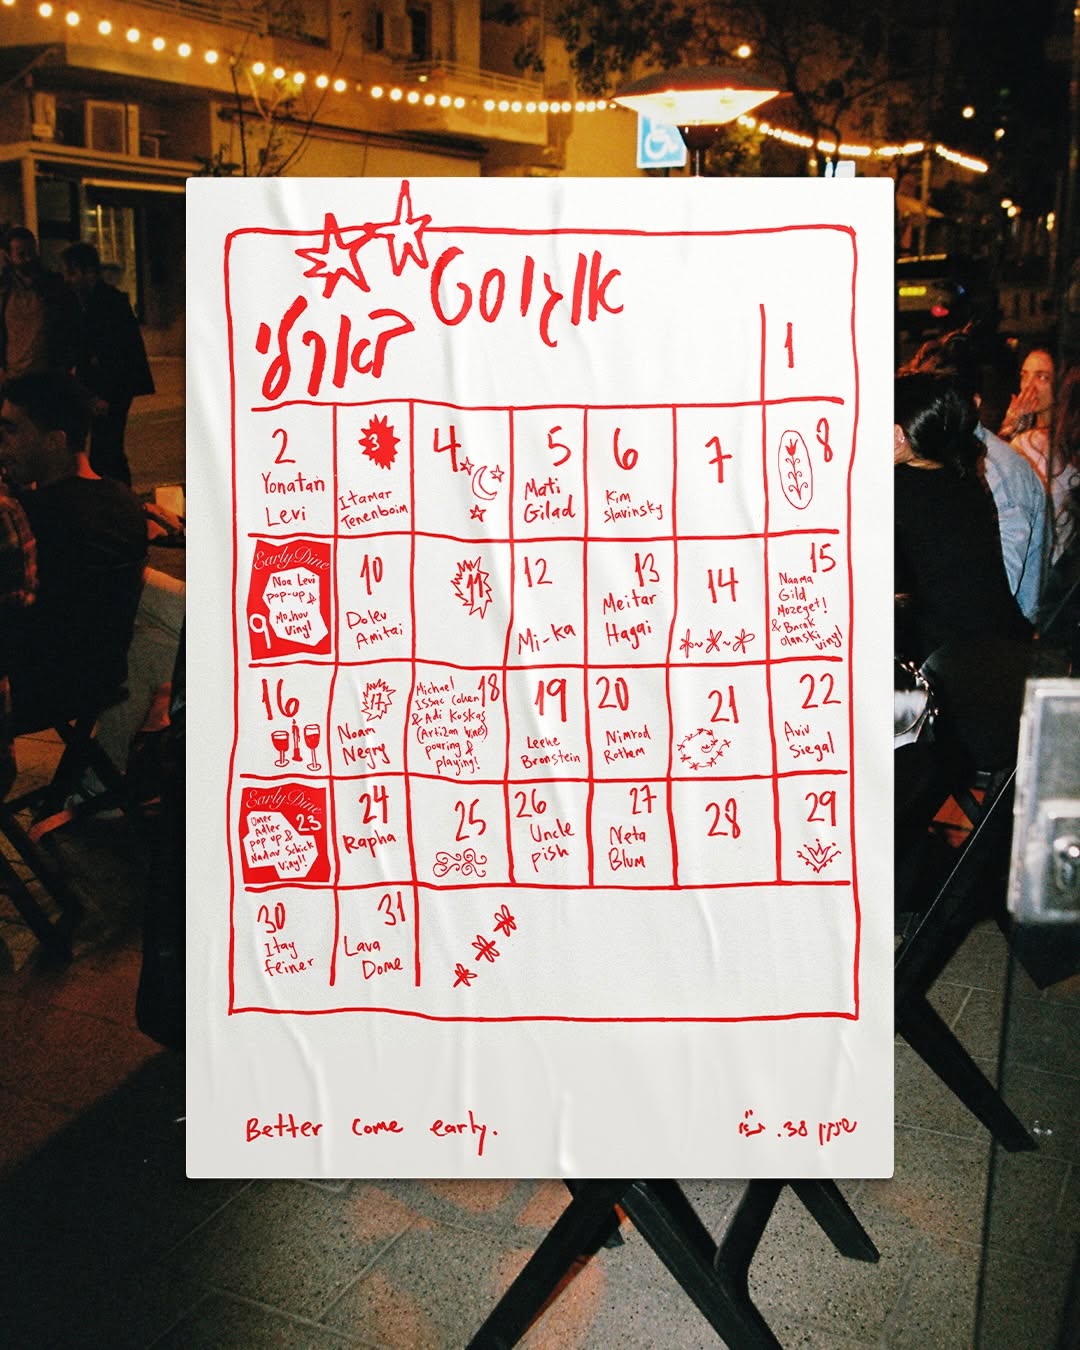 אוגוסט
בארלי
1
2
Yonatan
Levi
3
Itamar
Tenenboim
4
5
Mati
Gilad
6
Kim
Slavinsky
7
8
Early Dine
9
Noa Levi
pop-up &
Mo.hov
Vinyl
10
Dolev
Amitai
11
12
Mi-ka
13
Meitar
Hagai
14
15
Naama
Gild
Mozeget!
& Barak
Olanski vinyl
16
17
Noam
Negry
18
Michael
Issac Cohen
& Adi Koskas
(Artizan wine)
pouring &
playing!
19
Leehe
Bronstein
20
Nimrod
Rothem
21
22
Aviv
Siegal
Early Dine
23
Omer
Adler
pop up &
Nadav Schick
Vinyl!
24
Rapha
25
26
Uncle
pish
27
Neta
Blum
28
29
30
Itay
feiner
31
Lava
Dome
Better come early.
שינקין 38. ת״א